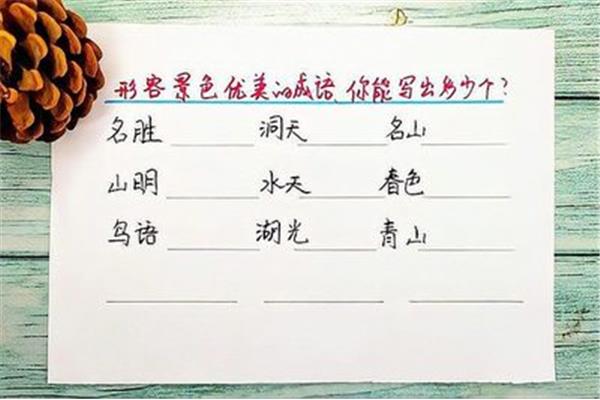 形容景色优美的成语、你能写出多少个?
名胜 洞天 名山
山明 水天 春色
鸟语 湖光 青山